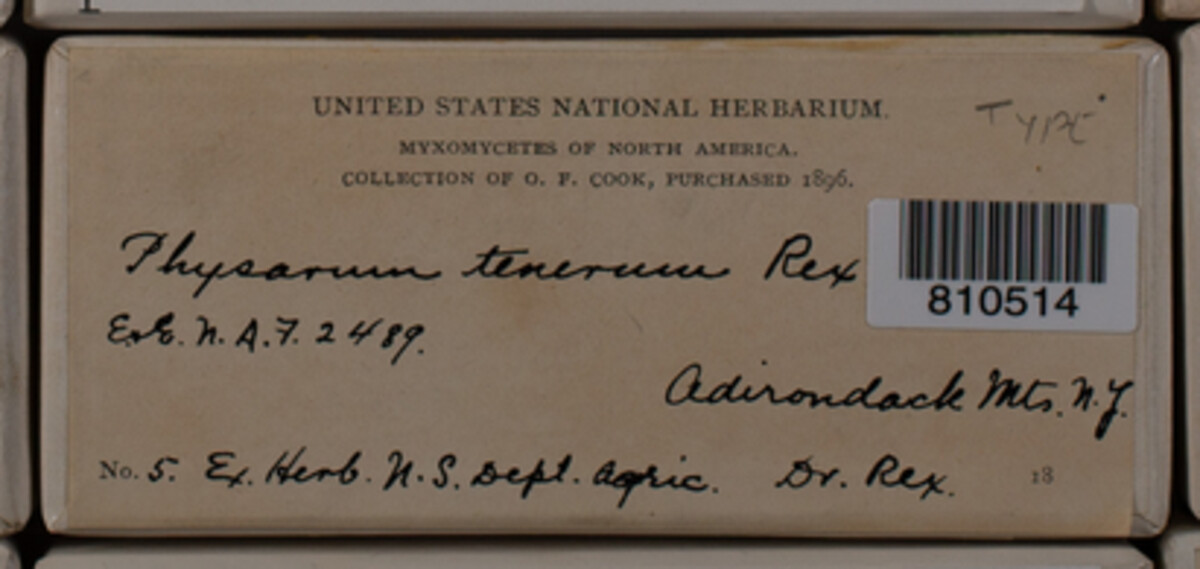 UNITED STATES NATIONAL HERBARIUM.
TYPE
MYXOMYCETES OF NORTH AMERICA.
COLLECTION OF O. F. COOK, PURCHASED 1896.
Physarum tenerum Rex
810514
E.&E. N. A. F. 2489.
Adirondack Mts. N.Y.
No. 5. Ex. Herb. U. S. Dept. Agric. Dr. Rex. 18